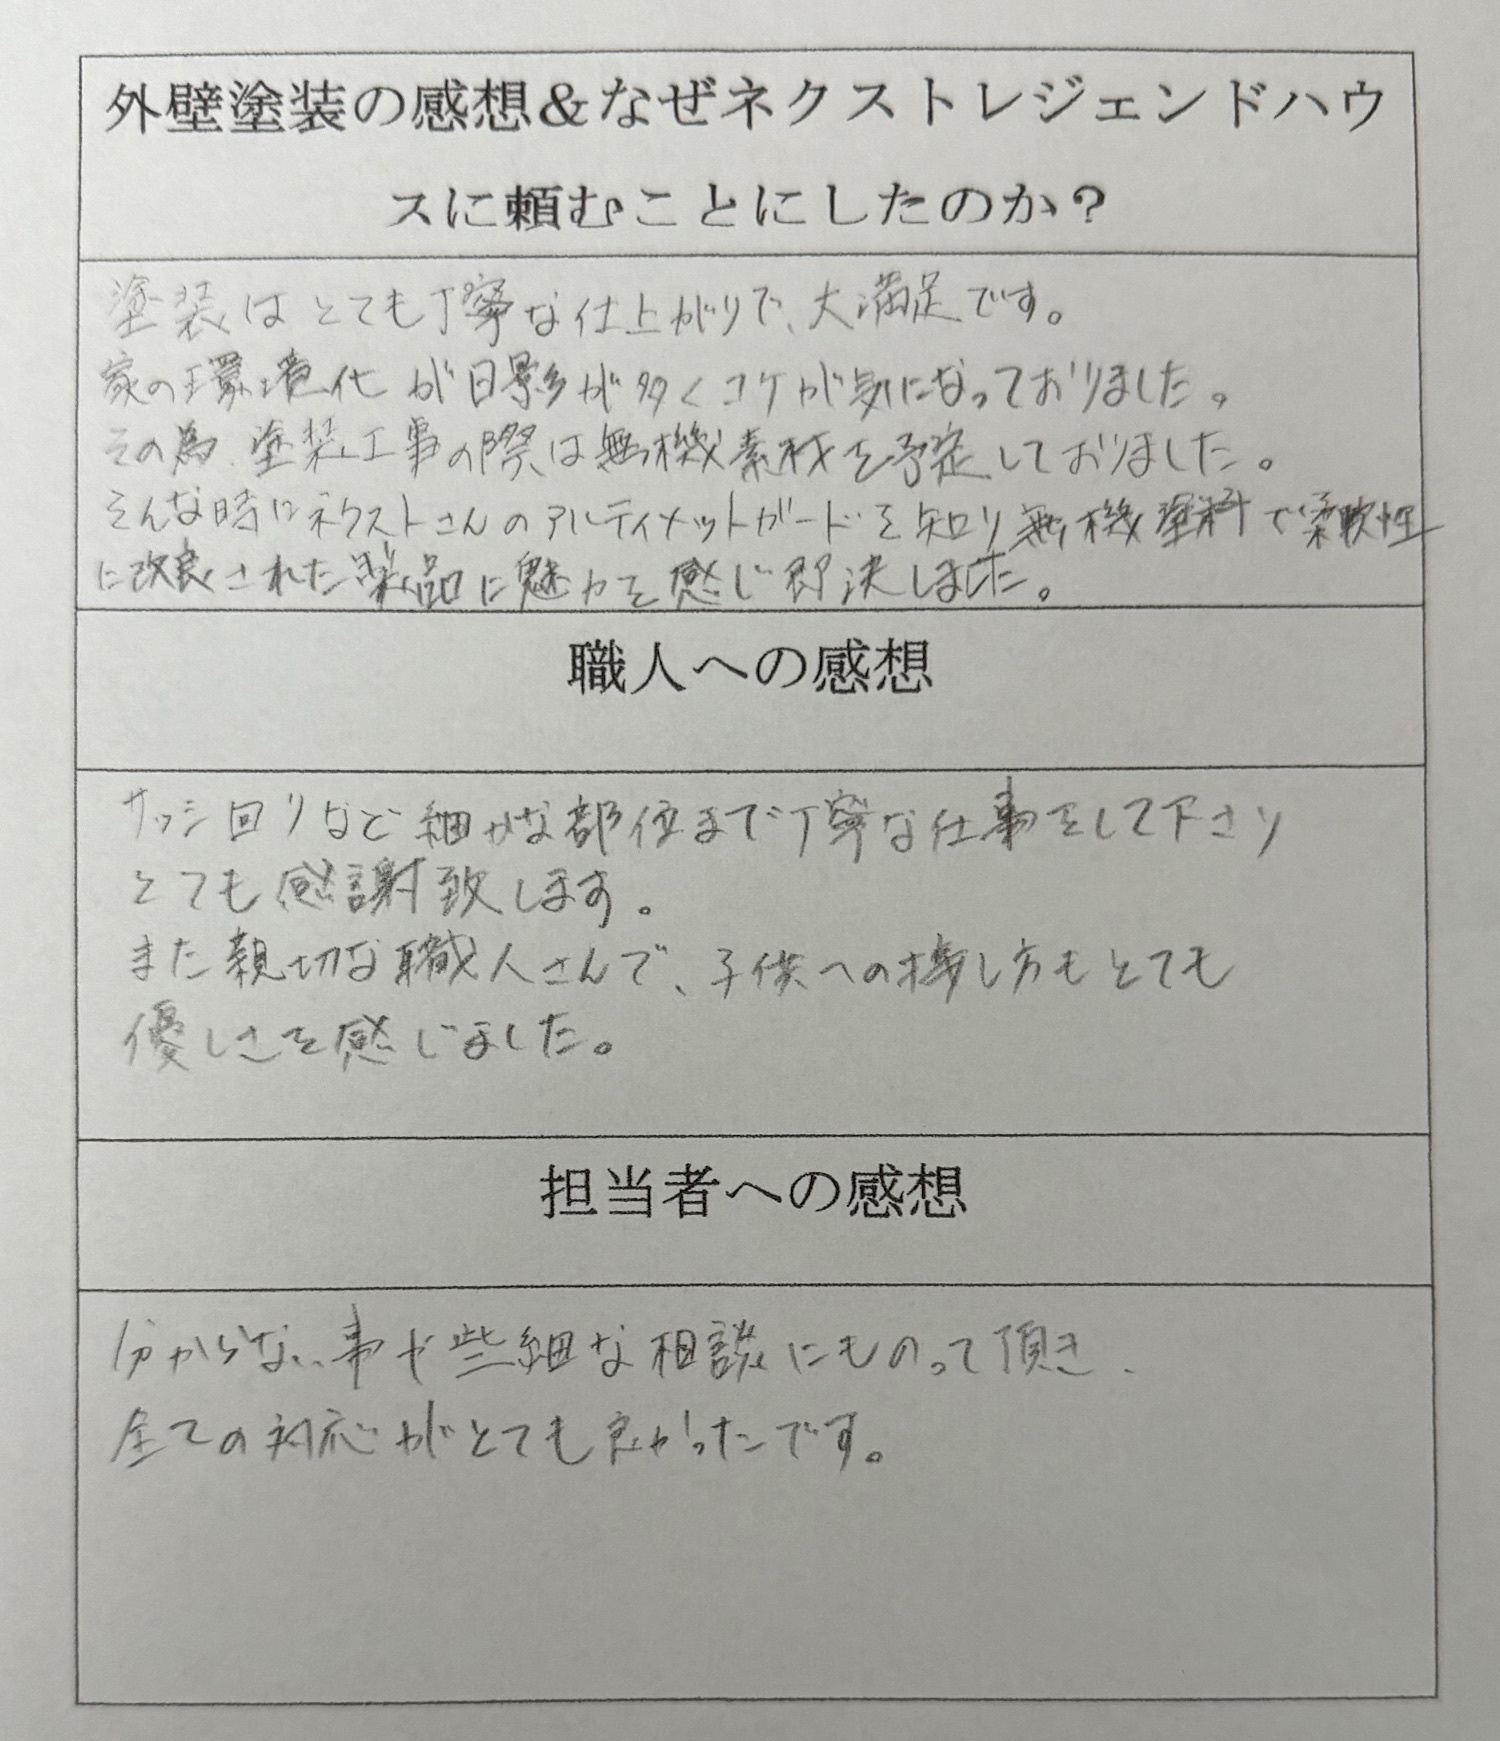 外壁塗装の感想&なぜネクストレジェンドハウ
スに頼むことにしたのか?
塗装はとても丁寧な仕上がりで、大満足です。
家の環境化が日影が多くコケが気になっておりました。
その為、塗装工事の際は無機素材を予定しておりました。
そんな時にネクストさんのアルティメットガードを知り無機塗料で柔軟性
に改良された製品に魅力を感じ即決しました。
職人への感想
サッシ回りなど細かな部位まで丁寧な仕事をして下さり
とても感謝致します。
また親切な職人さんで、子供への接し方もとても
優しさを感じました。
担当者への感想
分からない事や些細な相談にものって頂き、
全ての対応がとても良かったです。